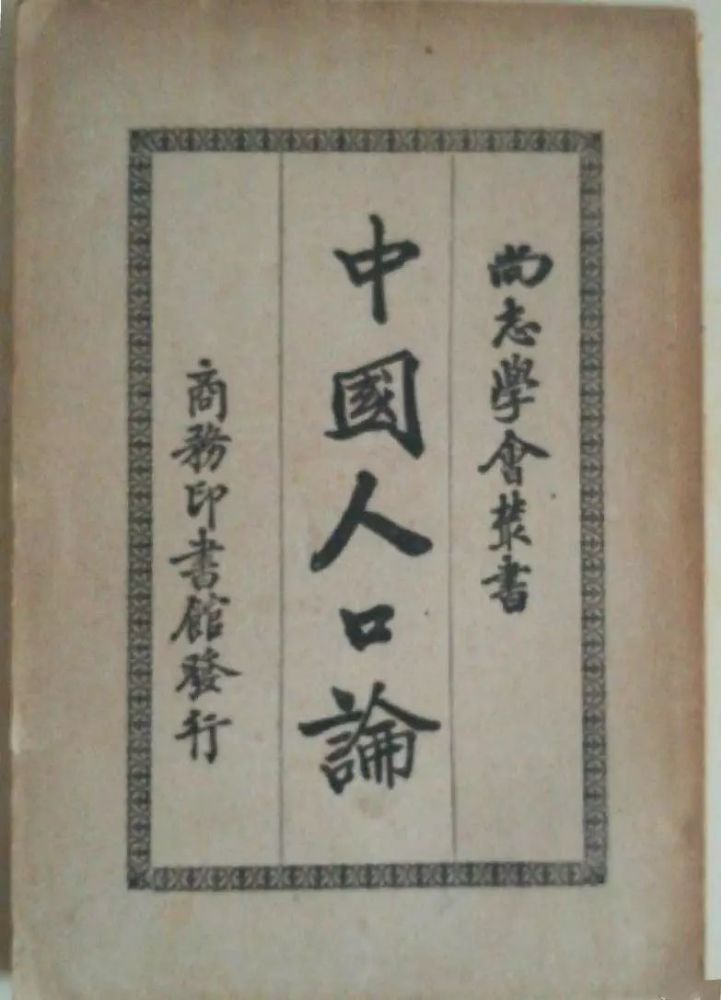 尚志學會叢書
中國人口論
商務印書館發行